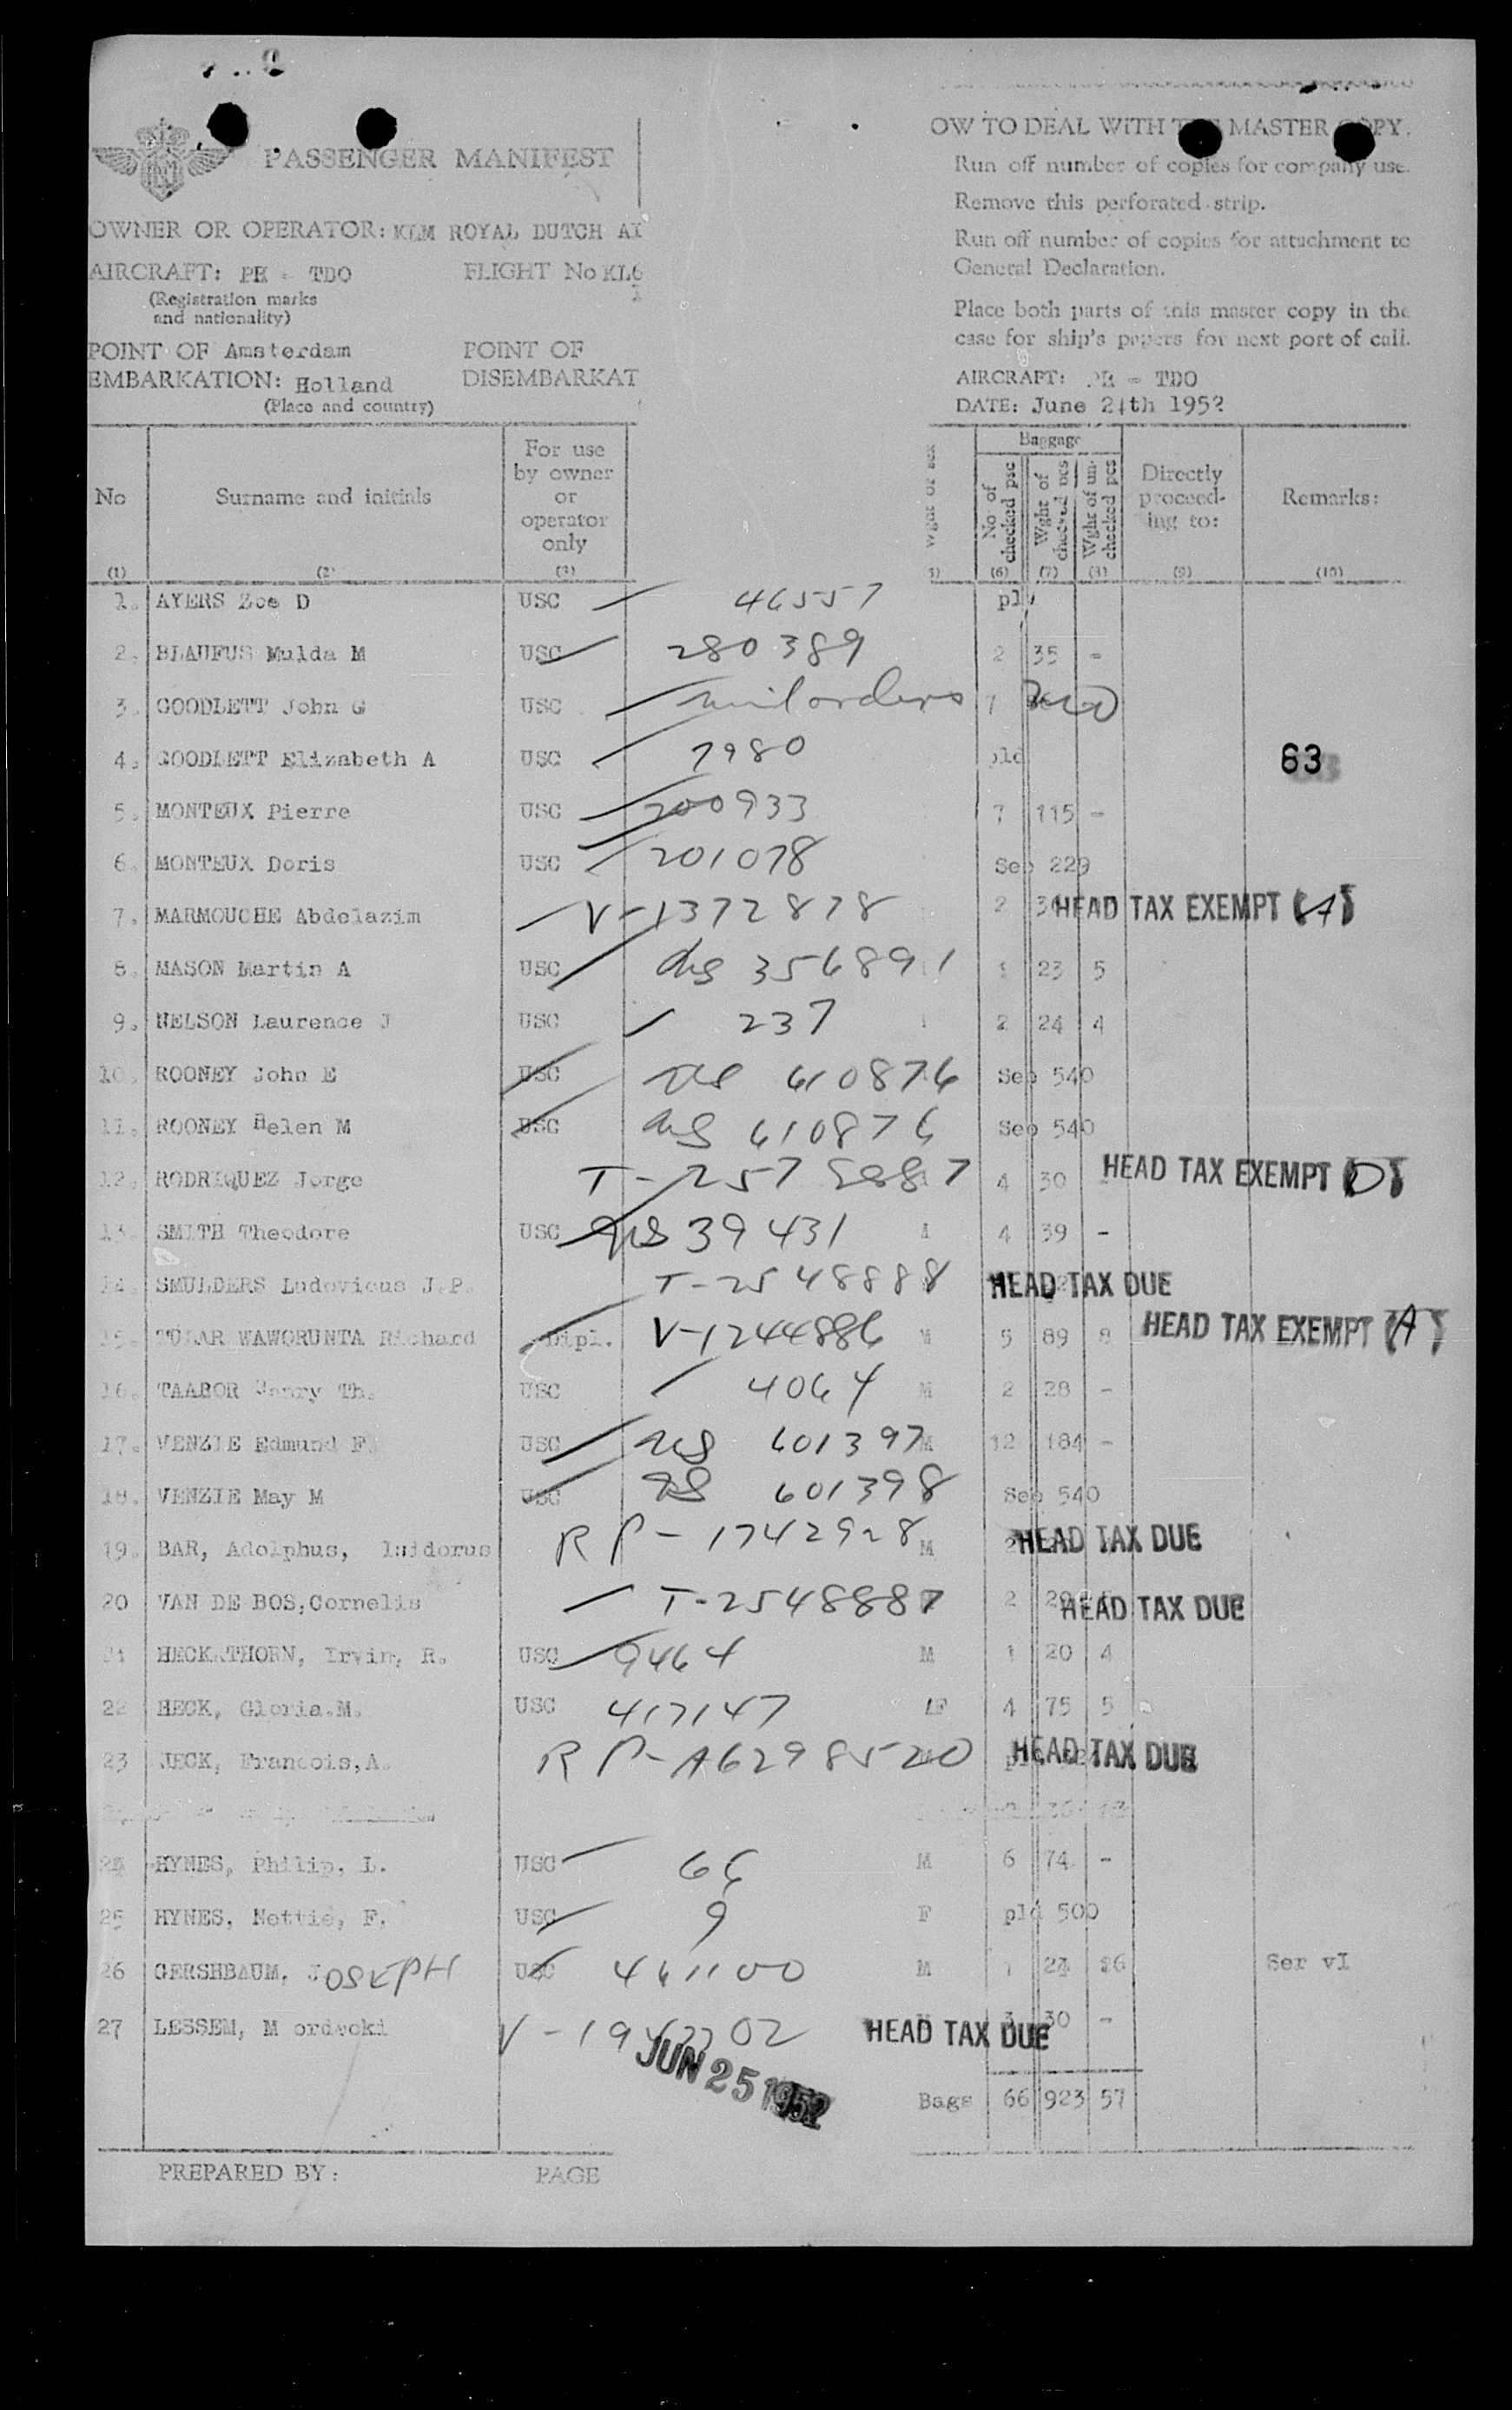 PASSENGER MANIFEST
OW TO DEAL WITH MASTER PY.
Run off number of copies for company use.
Remove this perforated strip.
Run off number of copies for attachment to
General Declaration.
Place both parts of this master copy in the
case for ship's papers for next port of call.
OWNER OR OPERATOR: KLM ROYAL DUTCH AI
AIRCRAFT: PH - TDO FLIGHT No KL6
(Registration marks
and nationality)
POINT OF Amsterdam POINT OF
EMBARKATION: Holland DISEMBARKAT
(Place and country)
AIRCRAFT: PH - TDO
DATE: June 24th 1952
No Surname and initials For use by owner or operator only Baggage No of checked psc Wght of checked pcs Wght of un-checked pcs Directly proceed-ing to: Remarks:
(1) (2) (3) 5) (6) (7) (8) (9) (10)
1. AYERS Zoe D USC 46557 pl
2. BLAUFUS Mulda M USC 280389 2 35 -
3. GOODLETT John G USC mil orders 7
4. GOODLETT Elizabeth A USC 7980 pld 63
5. MONTEUX Pierre USC 200933 7 115 -
6. MONTEUX Doris USC 201078 Sep 229
7. MARMOUCHE Abdelazim V-1372878 2 HEAD TAX EXEMPT (A)
8. MASON Martin A USC 356891 1 23 5
9. NELSON Laurence J USC 237 2 24 4
10. ROONEY John E USC 610876 Sep 540
11. ROONEY Helen M USC 610876 Sep 540
12. RODRIQUEZ Jorge T-257 5887 4 30 HEAD TAX EXEMPT (D)
13. SMITH Theodore USC 39431 4 39 -
14. SMULDERS Ludovicus J.P. T-2548888 HEAD TAX DUE
15. WAWORUNTA Richard Dipl. V-1244886 M 5 89 8 HEAD TAX EXEMPT (A)
16. TAABOR Henry Th. USC 4064 M 2 28 -
17. VENZIE Edmund F. USC 601397 M 12 184 -
18. VENZIE May M USC 601398 Sep 540
19. BAR, Adolphus, Isidorus RP-1742928 M 2 HEAD TAX DUE
20 VAN DE BOS,Cornelis T-2548887 2 HEAD TAX DUE
21 HECKATHORN, Irvin, R. USC 9464 M 1 20 4
22 HECK, Gloria.M. USC 417147 F 4 75 5
23 JECK, Francois,A. RP-A6298520 HEAD TAX DUE
24 HYNES, Philip, L. USC 66 M 6 74 -
25 HYNES, Nettie, F. USC 9 F pld 500
26 GERSHBAUM, JOSEPH USC 461100 M 1 24 26 Ser vI
27 LESSEM, M ordecki HEAD TAX DUE 3 30 -
JUN 25 1952
Bags 66 923 57
PREPARED BY: PAGE